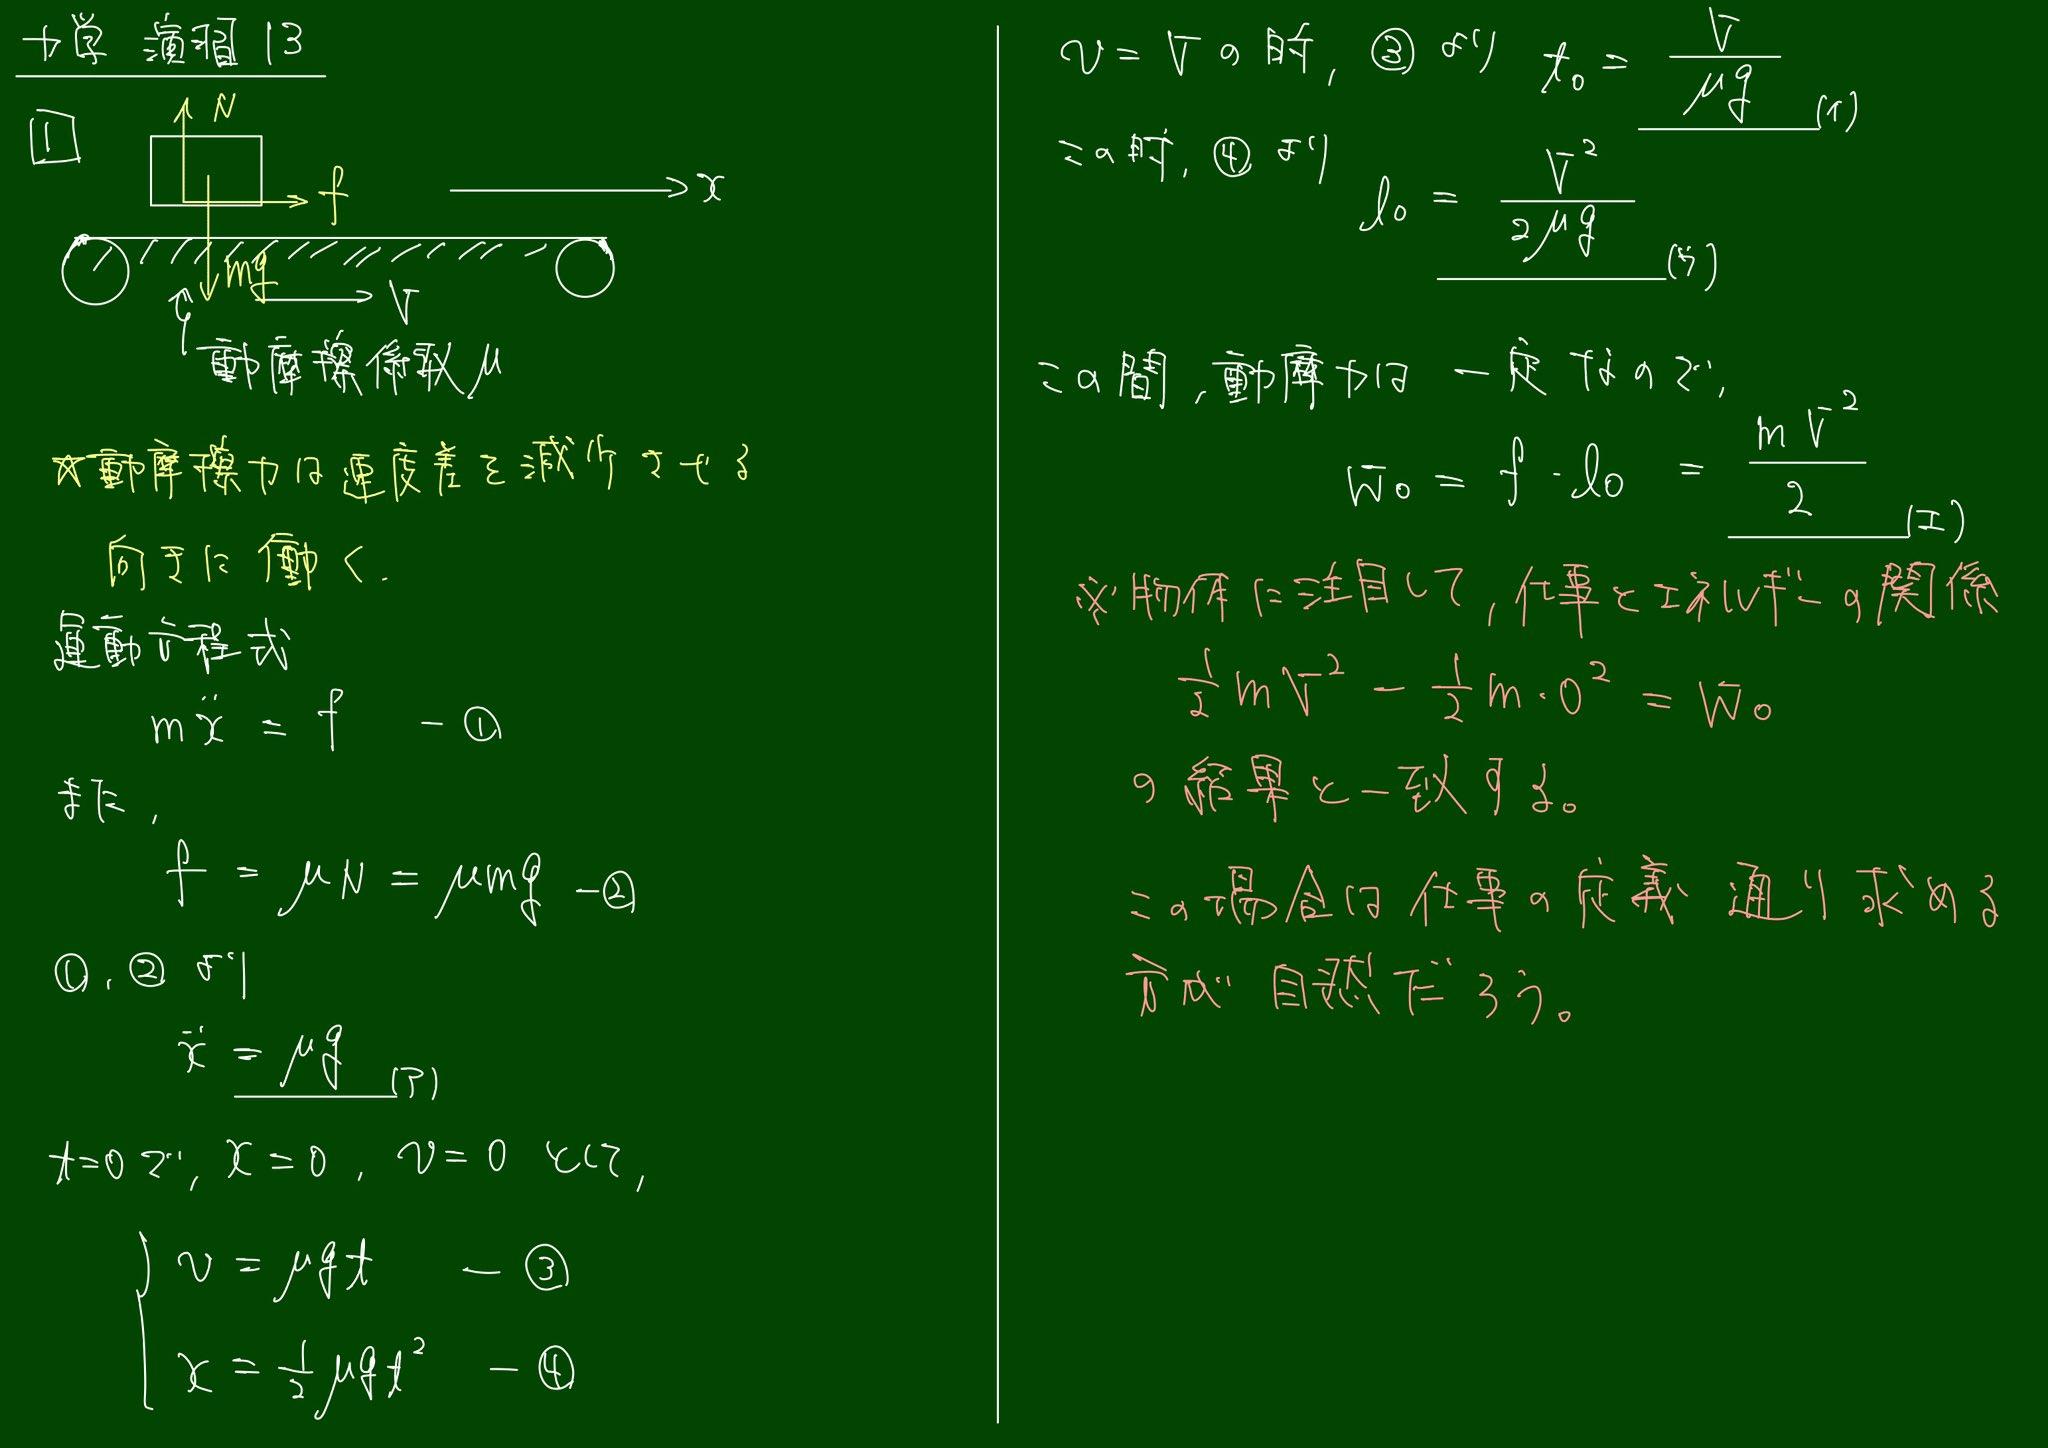 力学 演習 13
1
N
f
x
mg
V
動摩擦係数 μ
☆動摩擦力は速度差を減少させる
向きに働く.
運動方程式
mẍ = f - ①
また,
f = μN = μmg - ②
①, ② より
ẍ = μg (ア)
t=0で, x=0, v=0 として,
v = μgt - ③
x = 1/2 μgt² - ④
v = V の時, ③ より t₀ = V/μg (イ)
この時, ④ より
l₀ = V²/2μg (ウ)
この間, 動摩力は 一定なので,
W₀ = f・l₀ = mV²/2 (エ)
※物体に注目して, 仕事とエネルギーの関係
1/2 mV² - 1/2 m・0² = W₀
の結果と一致する。
この場合は 仕事の定義 通り求める
方が 自然だろう。